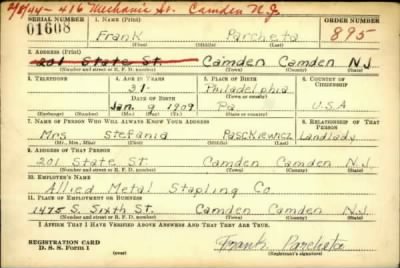 2/8/44- 416 Mechanic St. Camden N.J.
SERIAL NUMBER 1. NAME (Print) ORDER NUMBER
01608 Frank Parcheta 895
(First) (Middle) (Last)
2. ADDRESS (Print)
201 State St. Camden Camden N.J.
(Number and street or R. F. D. number) (Town) (County) (State)
3. TELEPHONE 4. AGE IN YEARS 5. PLACE OF BIRTH 6. COUNTRY OF CITIZENSHIP
31 Philadelphia
DATE OF BIRTH (Town or county)
Jan. 9 1909 Pa. U.S.A
(Mo.) (Day) (Yr.) (State or country)
7. NAME OF PERSON WHO WILL ALWAYS KNOW YOUR ADDRESS 8. RELATIONSHIP OF THAT PERSON
Mrs Stefania Pasckiewicz Landlady
(Mr., Mrs., Miss) (First) (Middle) (Last)
9. ADDRESS OF THAT PERSON
201 State St. Camden Camden N.J.
(Number and street or R. F. D. number) (Town) (County) (State)
10. EMPLOYER'S NAME
Allied Metal Stapling Co
11. PLACE OF EMPLOYMENT OR BUSINESS
1475 S. Sixth St. Camden Camden N.J.
(Number and street or R. F. D. number) (Town) (County) (State)
I AFFIRM THAT I HAVE VERIFIED ABOVE ANSWERS AND THAT THEY ARE TRUE.
REGISTRATION CARD
D. S. S. Form 1 (over) Frank Parcheta
(Registrant's signature)